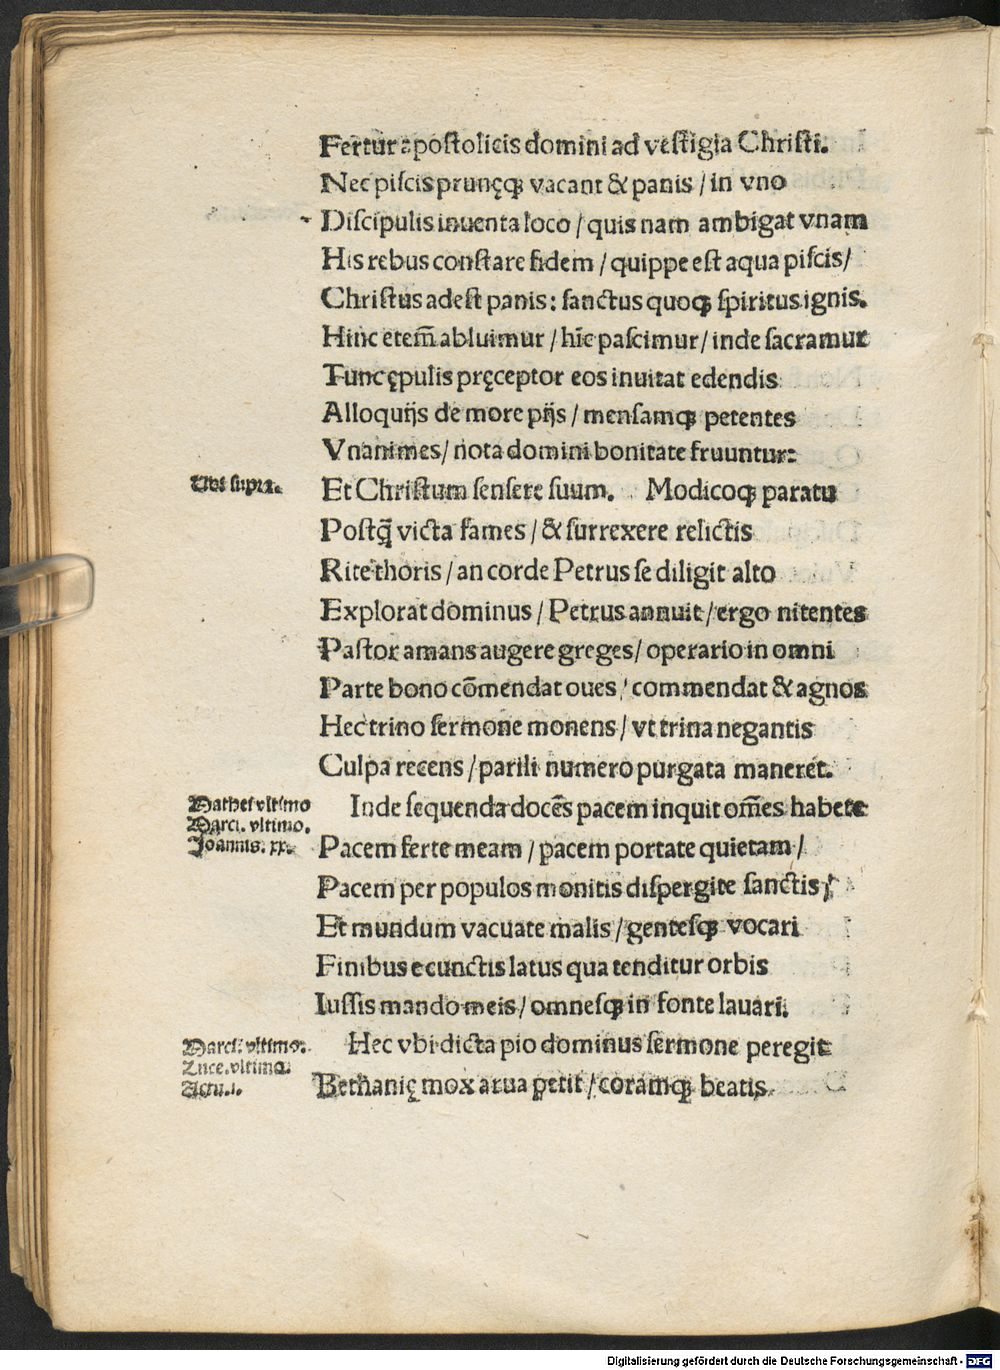 Fertur apostolicis domini ad vestigia Christi.
Nec piscis prunęq; vacant & panis / in vno
Discipulis inuenta loco / quis nam ambigat vnam
His rebus constare fidem / quippe est aqua piscis /
Christus adest panis: sanctus quoq; spiritus ignis.
Hinc etem̄ abluimur / hīc pascimur / inde sacramur
Tunc ępulis pręceptor eos inuitat edendis
Alloquijs de more pijs / mensamq; petentes
Vnanimes / nota domini bonitate fruuntur:
Vbi supra.
Et Christum sensere suum. Modicoq; paratu
Postq̃ victa fames / & surrexere relictis
Rite thoris / an corde Petrus se diligit alto
Explorat dominus / Petrus annuit / ergo nitentes
Pastor amans augere greges / operario in omni
Parte bono cōmendat oues / commendat & agnos
Hec trino sermone monens / vt trina negantis
Culpa recens / parili numero purgata maneret.
Mathei vltimo
Marci. vltimo.
Joannis. xx.
Inde sequenda docēs pacem inquit om̄es habete
Pacem ferte meam / pacem portate quietam /
Pacem per populos monitis dispergite sanctis /
Et mundum vacuate malis / gentesq; vocari
Finibus e cunctis latus qua tenditur orbis
Iussis mando meis / omnesq; in fonte lauari.
Marci. vltimo.
Luce. vltimo.
Actu. i.
Hec vbi dicta pio dominus sermone peregit
Bethanię mox arua petit / coramq; beatis
Digitalisierung gefördert durch die Deutsche Forschungsgemeinschaft - DFG